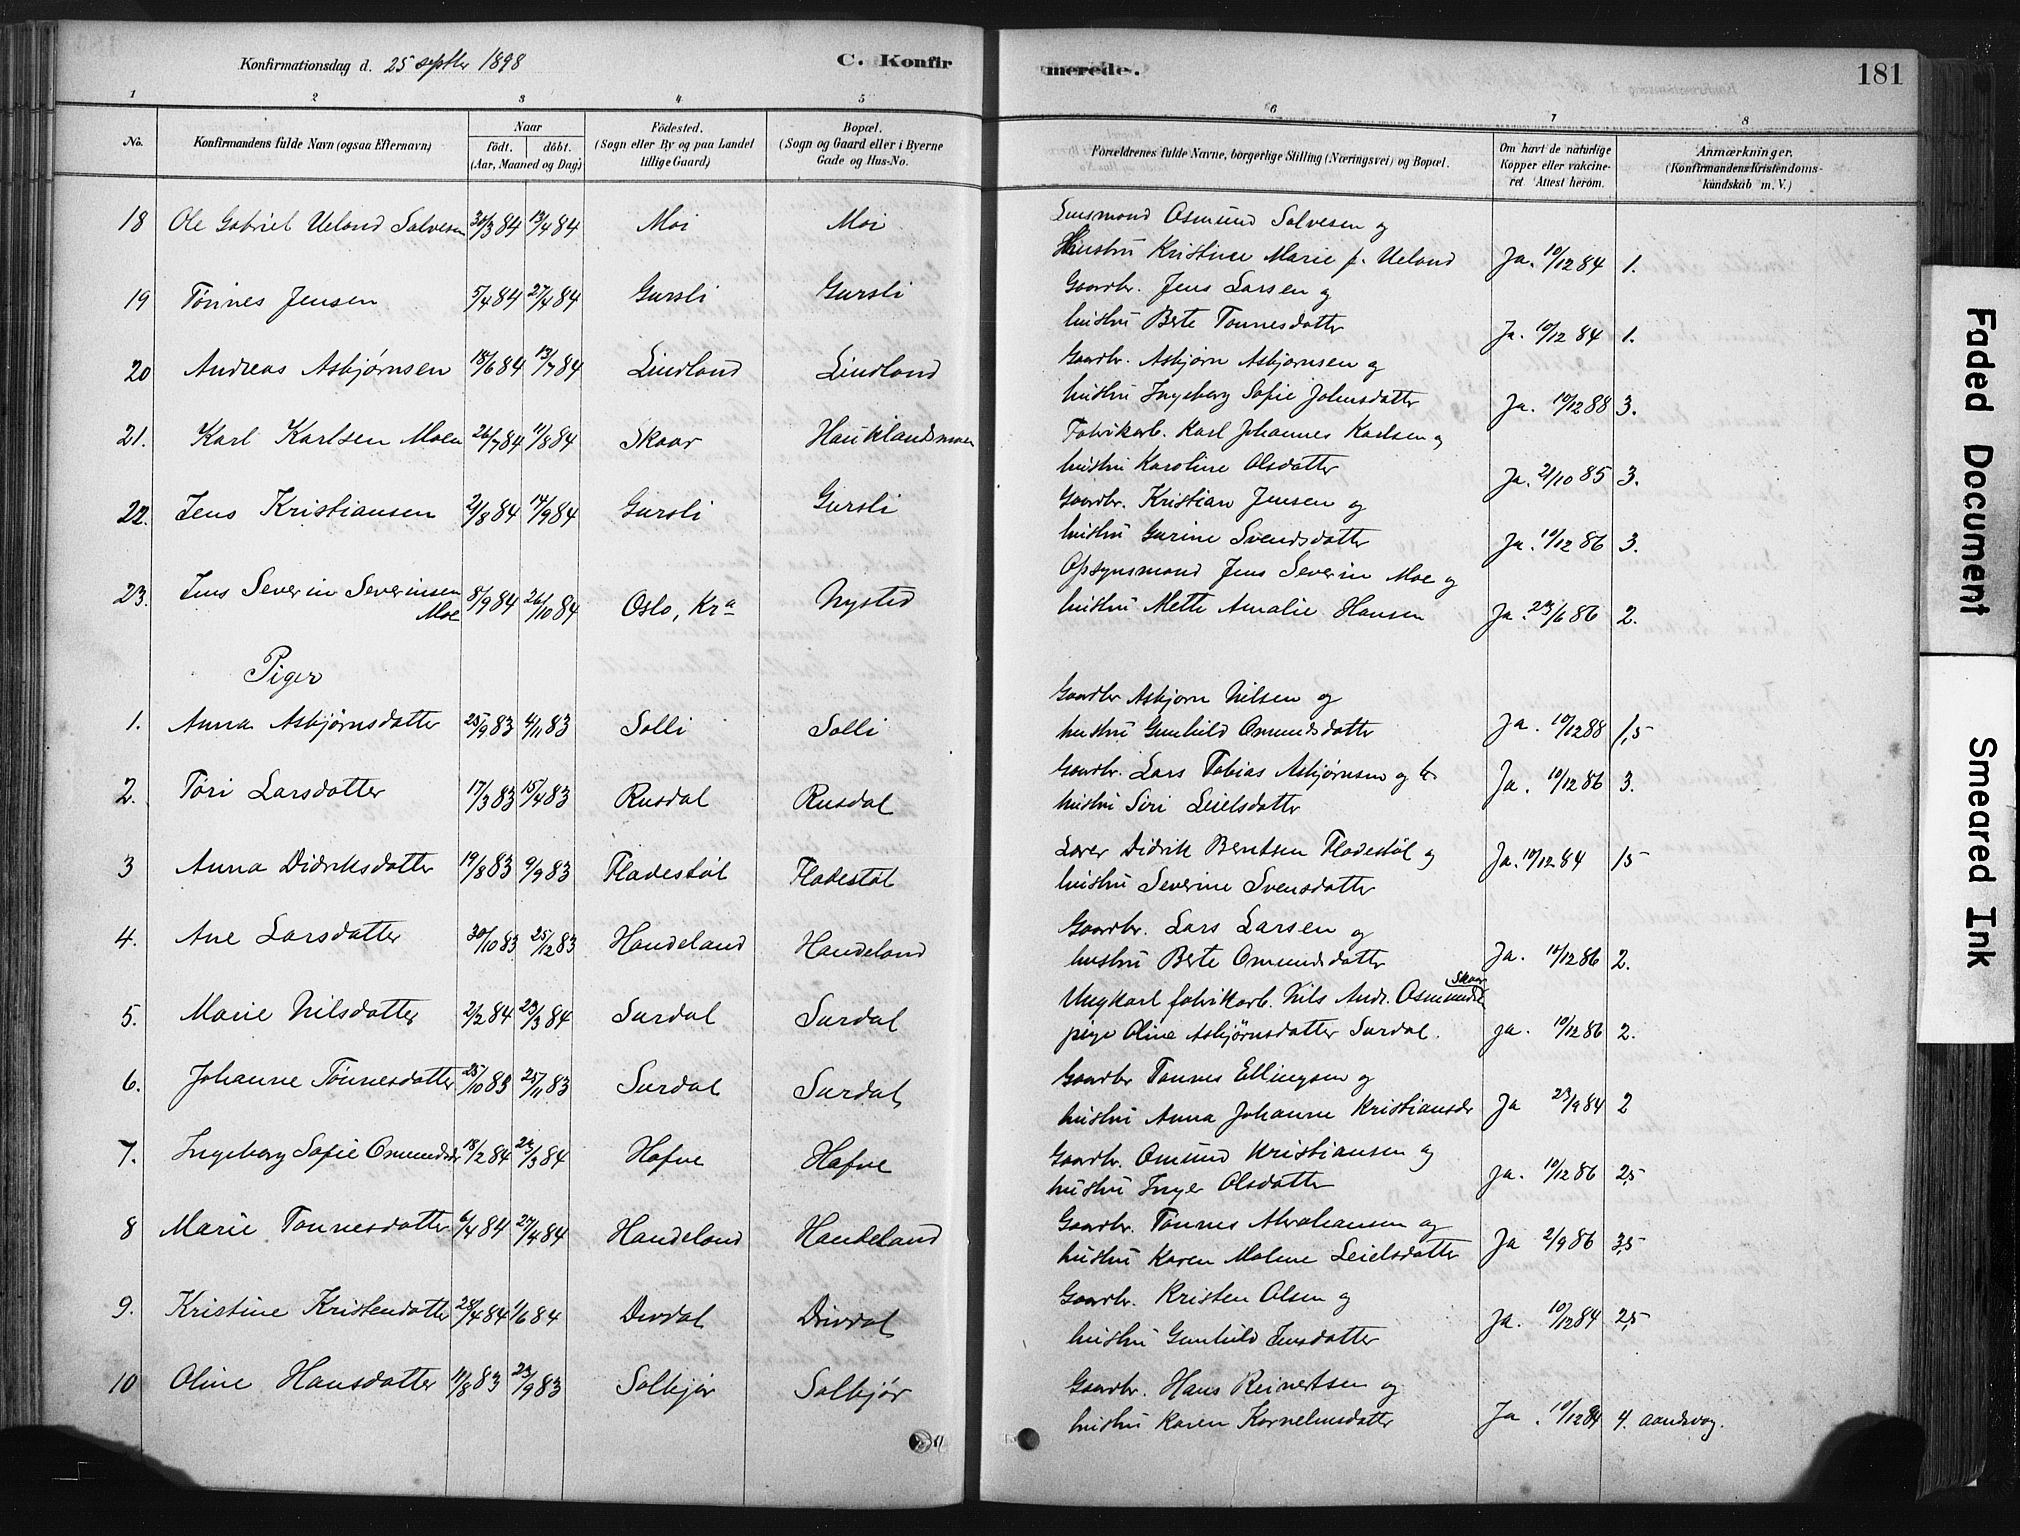 Konfirmationsdag d. 25 septbr 1898
C. Konfirmerede.
181
1 2 3 4 5 6 7 8
No. Konfirmandens fulde Navn (ogsaa Efternavn) Naar födt. döbt. (Aar, Maaned og Dag) Födested. (Sogn eller By og paa Landet tillige Gaard) Bopæl. (Sogn og Gaard eller i Byerne Gade og Hus-No. Forældrenes fulde Navne, borgerlige Stilling (Næringsvei) og Bopæl. Om havt de naturlige Kopper eller vakcineret Attest herom. Anmærkninger. (Konfirmandens Kristendomskundskab m. V.)
18 Ole Gabriel Ueland Salvesen 30/3 84 13/4 84 Moi Moi Lensmand Osmund Salvesen og
Hustru Kristine Marie f. Ueland Ja. 10/12 84 1.
19 Tønnes Jensen 5/4 84 27/4 84 Gursli Gursli Gaardbr. Jens Larsen og
hustru Berte Tønnesdatter Ja. 10/12 84 1.
20 Andreas Asbjørnsen 18/6 84 13/7 84 Lindland Lindland Gaardbr. Asbjørn Asbjørnsen og
hustru Ingeborg Sofie Johnsdatter Ja. 10/12 88 3.
21. Karl Karlsen Moen 26/7 84 11/8 84 Skaar Hauklandsmoen Fabrikarb. Karl Johannes Karlsen og
hustru Karoline Olsdatter Ja. 21/10 85 3.
22. Jens Kristiansen 2/8 84 14/9 84 Gursli Gursli Gaardbr. Kristian Jensen og
hustru Gurine Svendsdatter Ja. 10/12 86 3.
23. Jens Severin Severinsen Moe 8/9 84 26/10 84 Oslo, Kra Nysted Opsynsmand Jens Severin Moe og
hustru Mette Amalie Hansen Ja. 23/6 86 2.
Piger
1. Anna Asbjørnsdatter 25/9 83 4/11 83 Solli Solli Gaardbr Asbjørn Nilsen og
hustru Gunhild Omundsdatter Ja. 10/12 88 1,5
2. Tori Larsdatter 17/3 83 15/4 83 Rusdal Rusdal Gaardbr. Lars Tobias Asbjørnsen og
hustru Siri Leielsdatter Ja. 10/12 86 3.
3 Anna Didriksdatter 19/8 83 9/9 83 Fladestøl Fladestøl Lærer Didrik Berntsen Fladestøl og
hustru Severine Svensdatter Ja. 10/12 84 1,5
4. Ane Larsdatter 30/10 83 25/12 83 Handeland Handeland Gaardbr. Lars Larsen og
hustru Berte Omundsdatter Ja. 14/12 86 2.
5. Marie Nilsdatter 2/2 84 23/3 84 Surdal Surdal Ungkarl fabrikarb. Nils Andr. Osmunds. Skaar
pige Oline Asbjørnsdatter Surdal. Ja. 10/12 86 2.
6. Johanne Tønnesdatter 25/10 83 25/11 83 Surdal Surdal Gaardbr Tønnes Ellingsen og
hustru Anna Johanne Kristiansdr Ja 23/9 84 2
7. Ingeborg Sofie Omundsdr 18/2 84 23/3 84 Hafve Hafve Gaardbr. Omund Kristiansen og
hustru Inger Olsdatter Ja. 10/12 86 2,5
8 Marie Tønnesdatter 6/4 84 27/4 84 Handeland Handeland Gaardbr. Tønnes Abrahamsen og
hustru Karen Malene Leielsdatter Ja 2/9 86 3,5
9. Kristine Kristendatter 28/4 84 1/6 84 Drivdal Drivdal Gaardbr. Kristen Olsen og
hustru Gunhild Jensdatter Ja. 10/12 84 2,5
10 Oline Hansdatter 11/8 83 23/9 83 Solbjør Solbjør Gaardbr. Hans Reinertsen og
hustru Karen Korneliusdatter Ja. 10/12 84 4. aandsvag.
Faded Document
Smeared Ink